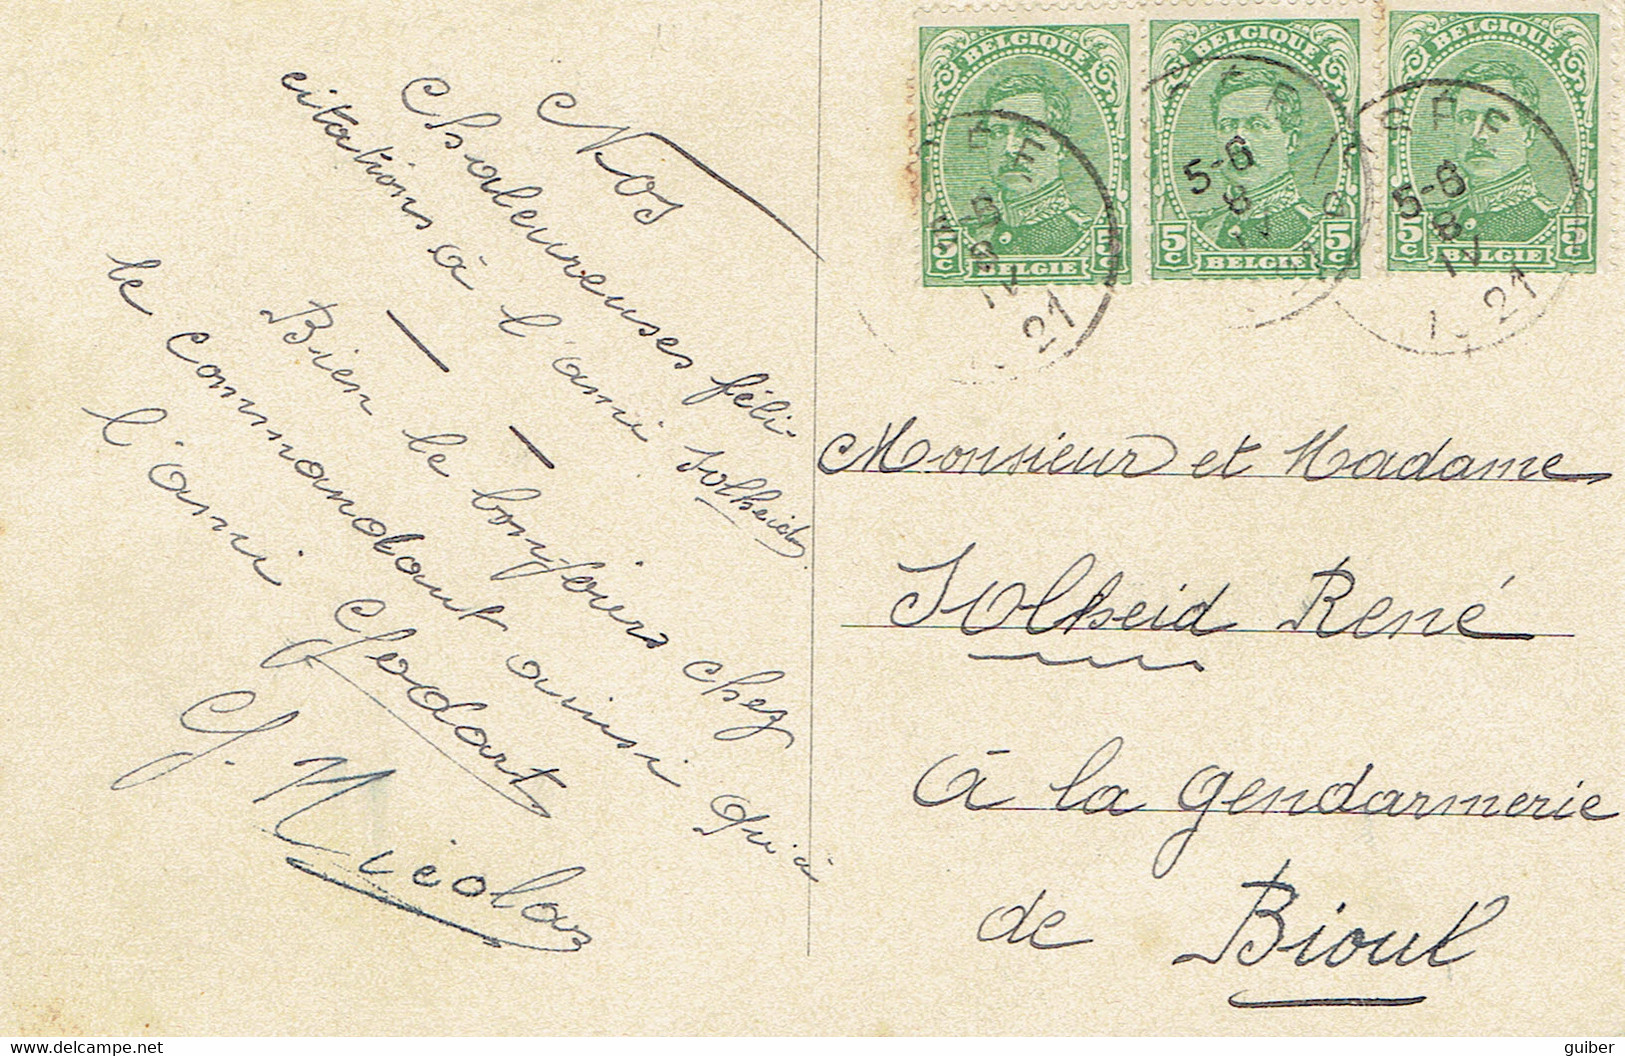 Nos
Chaleureuses féli-
citations à l'ami Solheid
Bien le bonjoirs chez
le commandant ainsi qu'à
l'ami Godart
G. Nicolas
BELGIQUE
5c 5c
BELGIE
BELGIQUE
5c 5c
BELGIE
BELGIQUE
5c 5c
BELGIE
5-6
8
IV
21
5-6
8
IV
5-6
8
IV
21
Monsieur et Madame
Solheid René
à la gendarmerie
de Bioul
www.delcampe.net
guiber